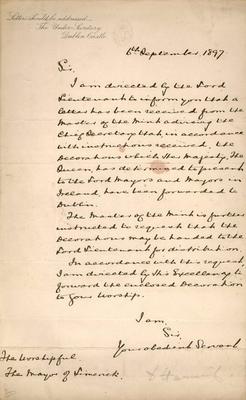 Letters should be addressed
The Under Secretary
Dublin Castle
6th September, 1897.
Sir,
I am directed by the Lord
Lieutenant to inform you that a
letter has been received from the
Master of the Mint advising the
Chief Secretary that, in accordance
with instructions received, the
Decorations which Her Majesty, The
Queen, has determined to present
to the Lord Mayors and Mayors in
Ireland, have been forwarded to
Dublin.
The Master of the Mint is further
instructed to request that the
Decorations may be handed to the
Lord Lieutenant for distribution.
In accordance with this request
I am directed by His Excellency to
forward the enclosed Decoration
to Your Worship.
I am,
Sir,
Your obedient Servant
The Worshipful
The Mayor of Limerick.